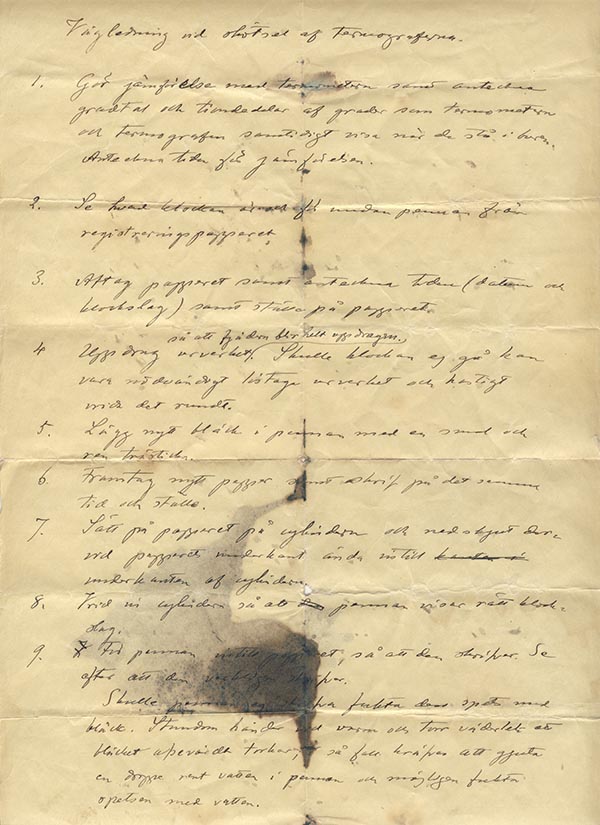 Vägledning vid skötsel af termograferna.
1. Gör jämförelse med termometern samt anteckna
gradtal och tiondedelar af grader som termometern
och termografen samtidigt visa när de stå i buren.
Anteckna tiden för jämförelsen.
2. Se hvad klockan är och för undan pennan från
registreringspapperet
3. Aftag papperet samt anteckna tiden (datum och
klockslag) samt ställe på papperet.
så att fjädern blir helt uppdragen.
4 Uppdrag urverket. Skulle klockan ej gå kan
vara nödvändigt löstaga urverket och hastigt
vrida det rundt.
5. Lägg nytt bläck i pennan med en smal och
ren trästicka.
6. Framtag nytt papper samt skrif på det samma
tid och ställe.
7. Sätt på papperet på cylindern och nedskjut der-
vid papperets underkant ända intill
underkanten af cylindern.
8. Vrid nu cylindern så att pennan visar rätt klock-
slag.
9. För pennan intill papperet, så att den skrifver. Se
efter att den verkligen skrifver.
Skulle pennan ej skrifva fukta dess spets med
bläck. Stundom händer vid varm och torr väderlek att
bläcket torkar, i så fall kräfves att gjuta
en droppe rent vatten i pennan och möjligen fukta
spetsen med vatten.